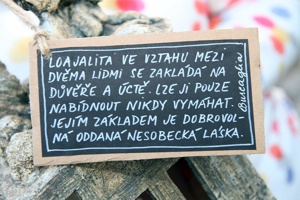 LOAJALITA VE VZTAHU MEZI
DVĚMA LIDMI SE ZAKLÁDÁ NA
DŮVĚŘE A ÚCTĚ. LZE JI POUZE
NABÍDNOUT NIKDY VYMÁHAT.
JEJÍM ZÁKLADEM JE DOBROVOL-
NÁ ODDANÁ NESOBECKÁ LÁSKA.